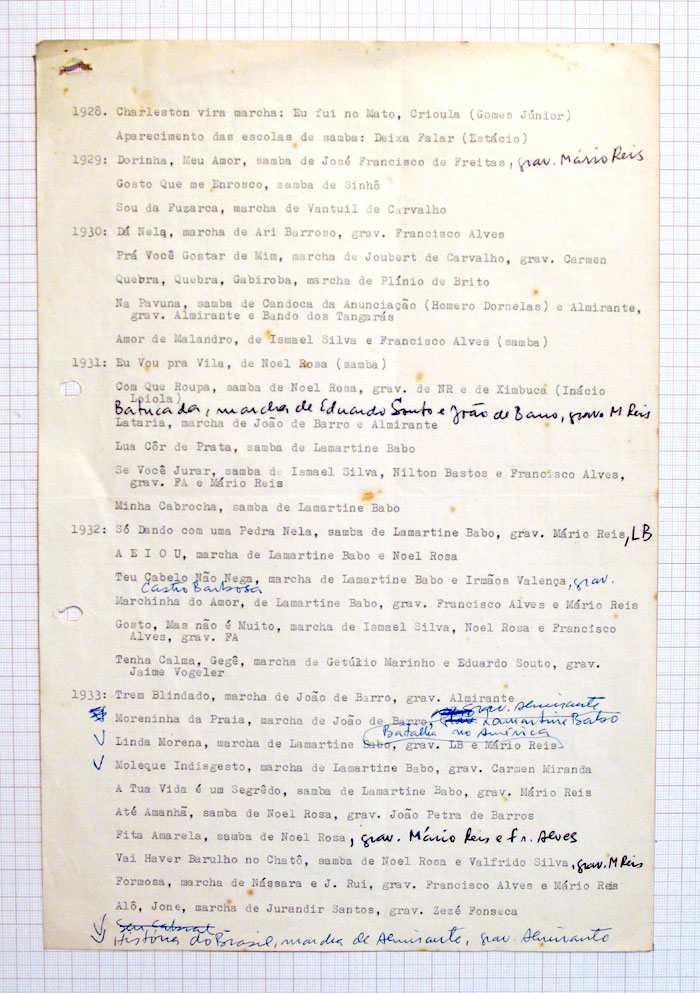 1928. Charleston vira marcha: Eu fui no Mato, Crioula (Gomes Júnior)
Aparecimento das escolas de samba: Deixa Falar (Estácio)
1929: Dorinha, Meu Amor, samba de José Francisco de Freitas, grav. Mário Reis
Gosto Que me Enrosco, samba de Sinhô
Sou da Fuzarca, marcha de Vantuil de Carvalho
1930: Dá Nela, marcha de Ari Barroso, grav. Francisco Alves
Prá Você Gostar de Mim, marcha de Joubert de Carvalho, grav. Carmen
Quebra, Quebra, Gabiroba, marcha de Plínio de Brito
Na Pavuna, samba de Candoca da Anunciação (Homero Dornelas) e Almirante,
grav. Almirante e Bando dos Tangarás
Amor de Malandro, de Ismael Silva e Francisco Alves (samba)
1931: Eu Vou pra Vila, de Noel Rosa (samba)
Com Que Roupa, samba de Noel Rosa, grav. de NR e de Ximbuca (Inácio
Loiola)
Batucada, marcha de Eduardo Souto e João de Barro, grav. M Reis
Lataria, marcha de João de Barro e Almirante
Lua Côr de Prata, samba de Lamartine Babo
Se Você Jurar, samba de Ismael Silva, Nilton Bastos e Francisco Alves,
grav. FA e Mário Reis
Minha Cabrocha, samba de Lamartine Babo
1932: Só Dando com uma Pedra Nela, samba de Lamartine Babo, grav. Mário Reis, LB
A E I O U, marcha de Lamartine Babo e Noel Rosa
Teu Cabelo Não Nega, marcha de Lamartine Babo e Irmãos Valença, grav.
Castro Barbosa
Marchinha do Amor, de Lamartine Babo, grav. Francisco Alves e Mário Reis
Gosto, Mas não é Muito, marcha de Ismael Silva, Noel Rosa e Francisco
Alves, grav. FA
Tenha Calma, Gegê, marcha de Getúlio Marinho e Eduardo Souto, grav.
Jaime Vogeler
1933: Trem Blindado, marcha de João de Barro, grav. Almirante
grav. Almirante
Moreninha da Praia, marcha de João de Barro, Lamartine Babo
Batalha no América
Linda Morena, marcha de Lamartine Babo, grav. LB e Mário Reis
Moleque Indigesto, marcha de Lamartine Babo, grav. Carmen Miranda
A Tua Vida é um Segrêdo, samba de Lamartine Babo, grav. Mário Reis
Até Amanhã, samba de Noel Rosa, grav. João Petra de Barros
Fita Amarela, samba de Noel Rosa, grav. Mário Reis e Fr. Alves
Vai Haver Barulho no Chatô, samba de Noel Rosa e Valfrido Silva, grav. M Reis
Formosa, marcha de Nássara e J. Rui, grav. Francisco Alves e Mário Reis
Alô, Jone, marcha de Jurandir Santos, grav. Zezé Fonseca
Seu Cabral
História do Brasil, marcha de Almirante, grav Almirante